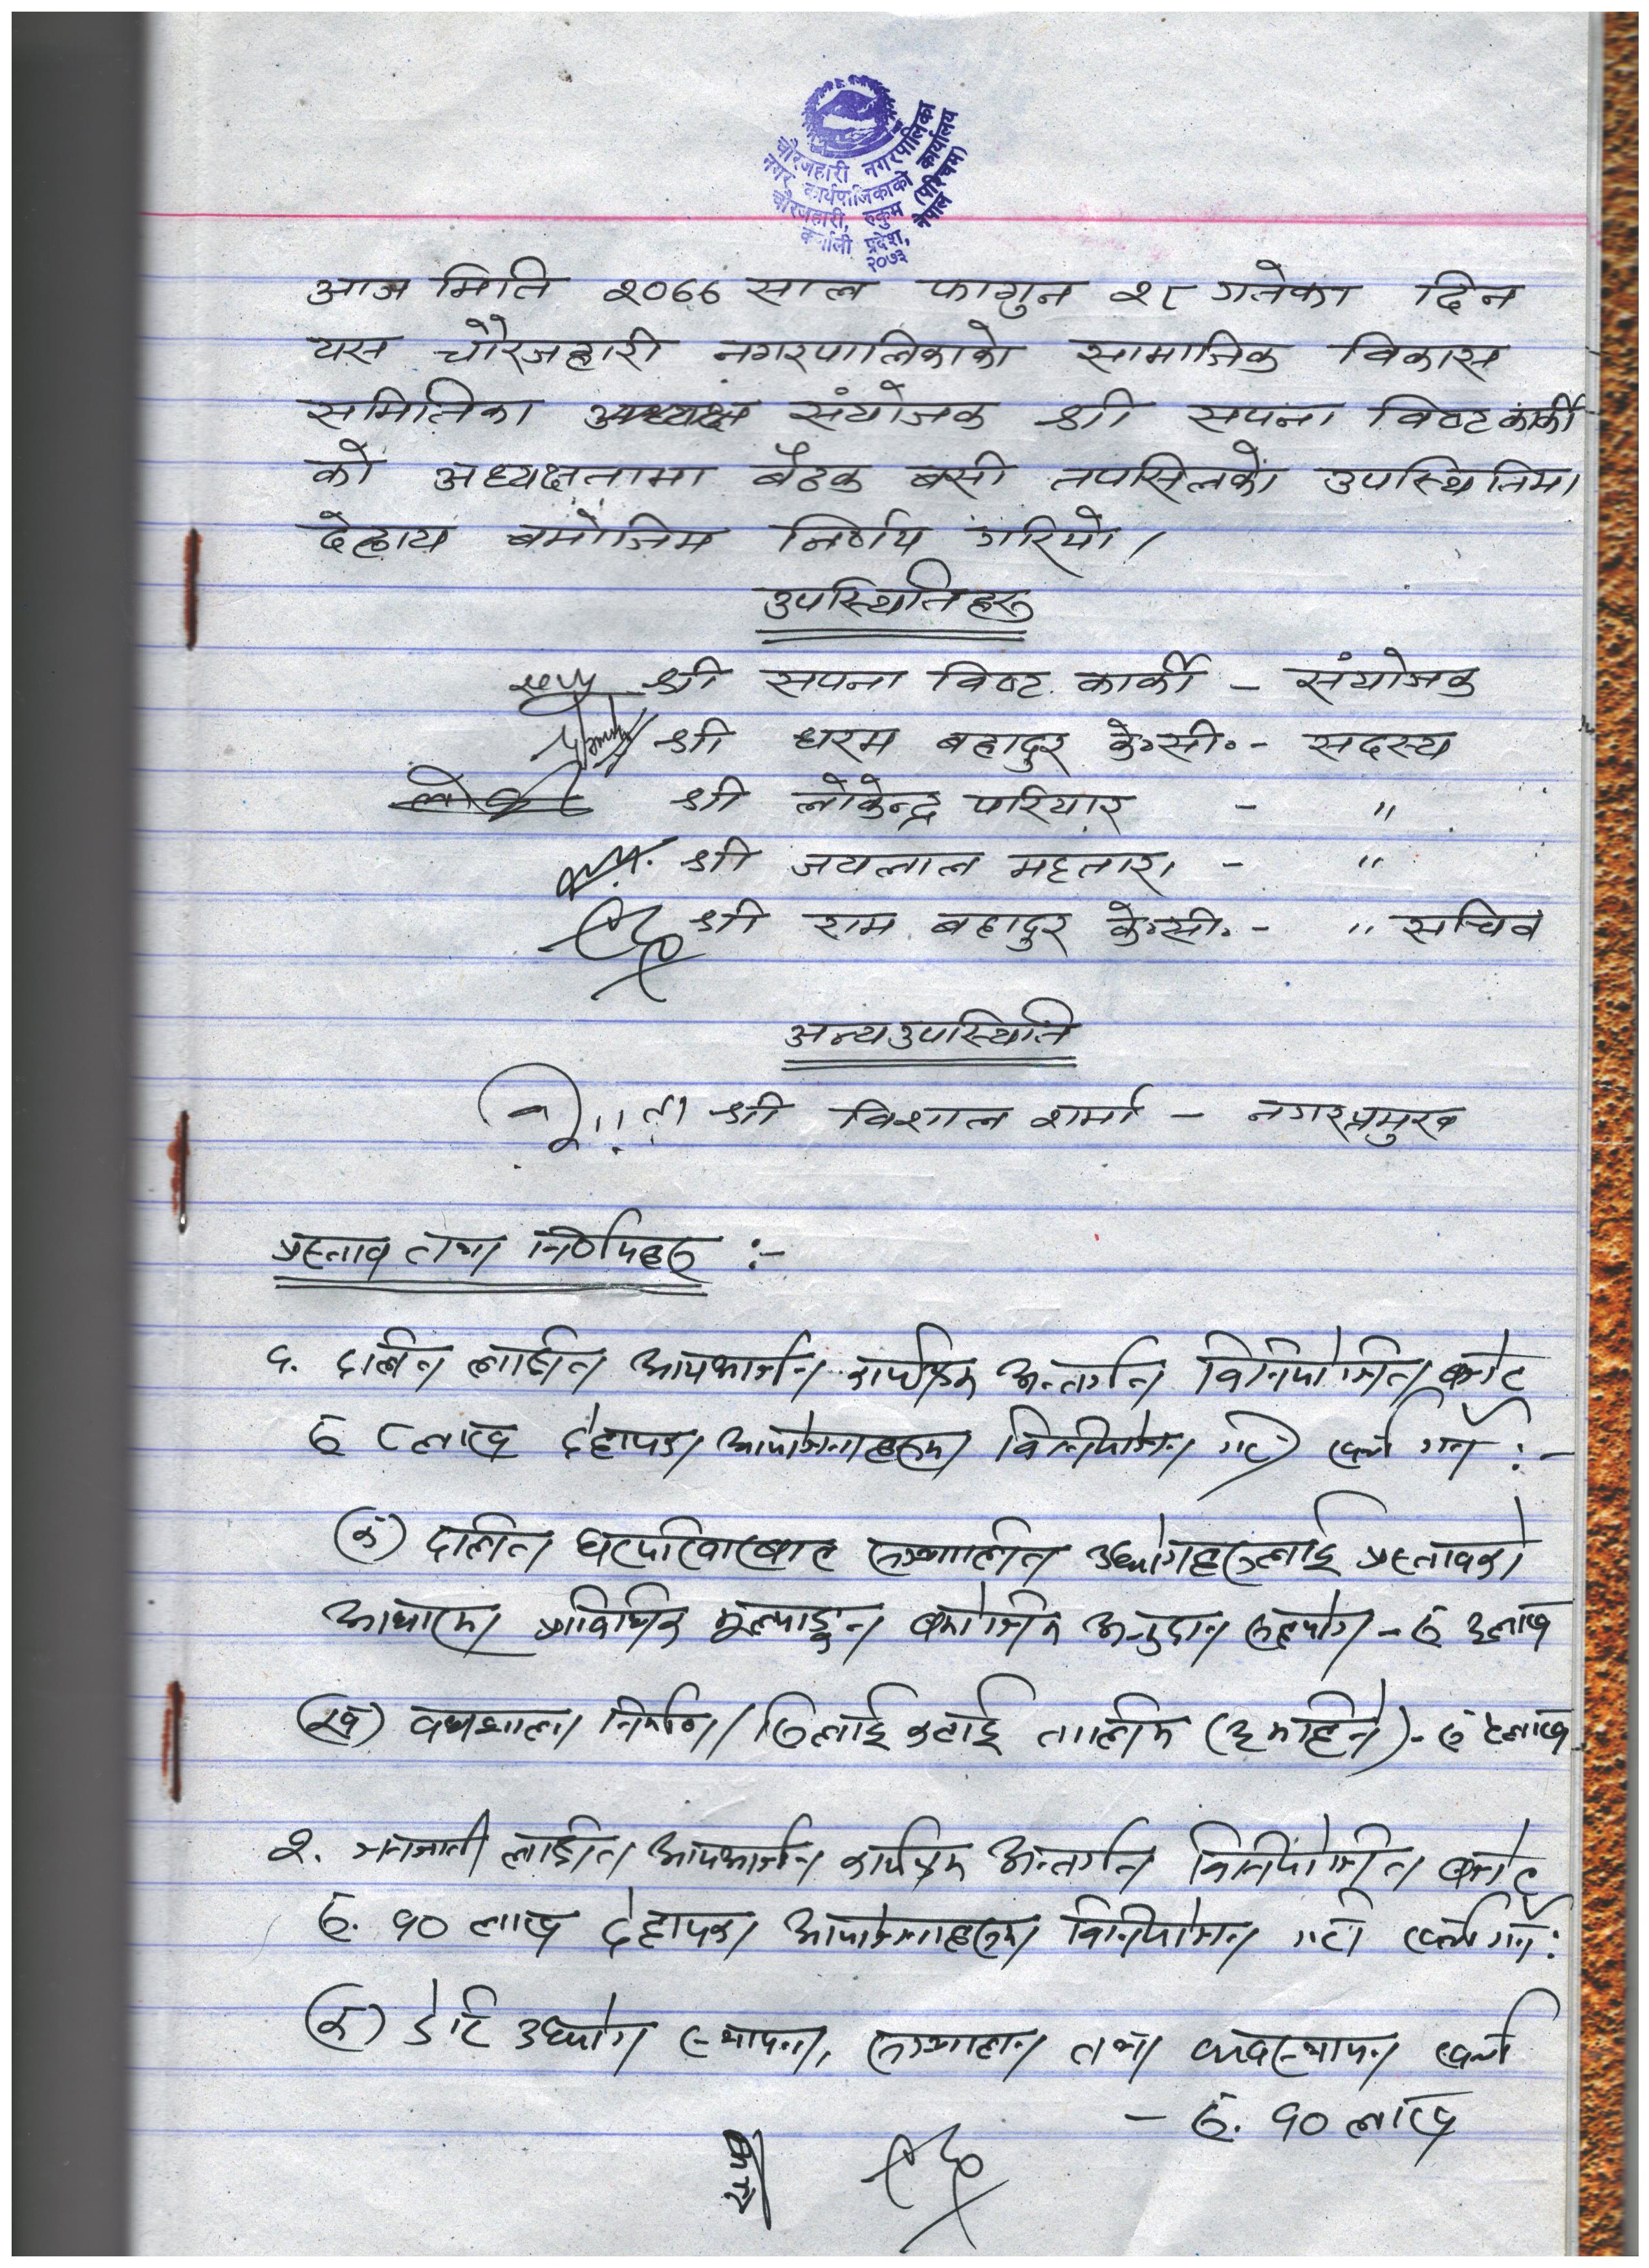 चौरजहारी नगरपालिका
नगर कार्यपालिकाको कार्यालय
चौरजहारी, रुकुम (पश्चिम)
कर्णाली प्रदेश, नेपाल
२०७३
आज मिति २०७७ साल फागुन २८ गतेका दिन
यस चौरजहारी नगरपालिकाको सामाजिक विकास
समितिका संयोजक श्री सपना विष्ट कार्की
को अध्यक्षतामा बैठक बसी तपसिलको उपस्थितिमा
देहाय बमोजिम निर्णय गरियो।
उपस्थितिहरु
श्री सपना विष्ट कार्की - संयोजक
श्री धरम बहादुर के॰सी॰ - सदस्य
श्री लोकेन्द्र परियार - "
श्री जयलाल महतारा - "
श्री राम बहादुर के॰सी॰ - " सचिव
अन्य उपस्थिति
श्री विशाल शर्मा - नगरप्रमुख
प्रस्ताव तथा निर्णयहरु :-
१. दलित लक्षित आयआर्जन कार्यक्रम अन्तर्गत विनियोजित बजेट
रु ८ लाख देहायका आयोजनाहरुमा विनियोजन गरी खर्च गर्ने :-
(क) दलित घरपरिवारबाट सञ्चालित उद्योगहरुलाई प्रस्तावको
आधारमा प्राविधिक मूल्याङ्कन बमोजिम अनुदान सहयोग - रु ३ लाख
(ख) वधशाला निर्माण / सिलाई कटाई तालिम (३ महिने) - रु लाख
२. जनजाती लक्षित आयआर्जन कार्यक्रम अन्तर्गत विनियोजित बजेट
रु. १० लाख देहायका आयोजनाहरुमा विनियोजन गरी खर्च गर्ने :
(क) डेरि उद्योग स्थापना, सञ्चालन तथा व्यवस्थापन खर्च
- रु. १० लाख